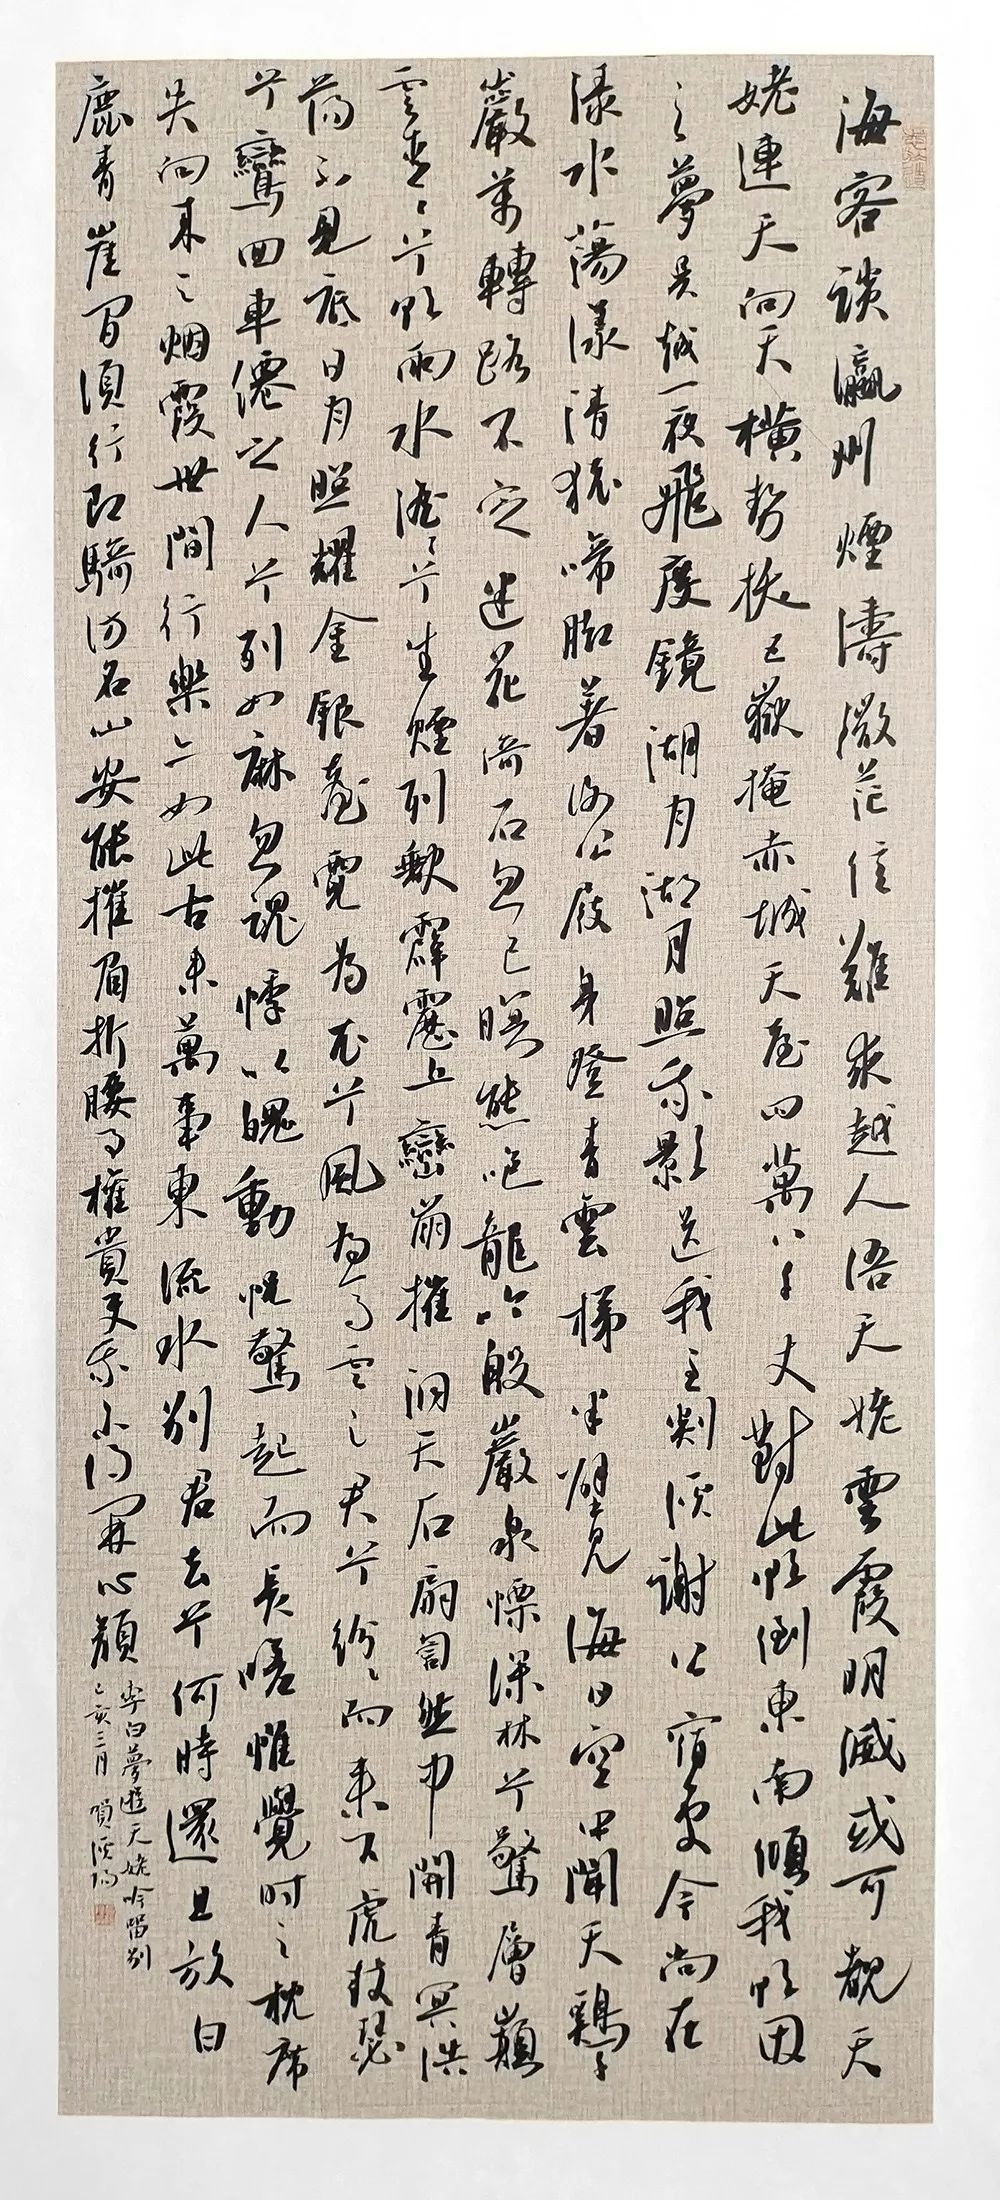 海客談瀛州煙濤微茫信難求越人語天姥雲霞明滅或可覩天
姥連天向天橫勢拔五嶽掩赤城天台四萬八千丈對此欲倒東南傾我欲因
之夢吳越一夜飛度鏡湖月湖月照我影送我至剡溪謝公宿處今尚在
淥水蕩漾清猿啼脚著謝公屐身登青雲梯半壁見海日空中聞天鷄千
巖萬轉路不定迷花倚石忽已暝熊咆龍吟殷巖泉慄深林兮驚層巔
雲青青兮欲雨水澹澹兮生煙列缺霹靂丘巒崩摧洞天石扇訇然中開青冥浩
蕩不見底日月照耀金銀臺霓為衣兮風為馬雲之君兮紛紛而來下虎鼓瑟
兮鸞回車僊之人兮列如麻忽魂悸以魄動怳驚起而長嗟惟覺時之枕席
失向來之烟霞世間行樂亦如此古來萬事東流水別君去兮何時還且放白
鹿青崖間須行即騎訪名山安能摧眉折腰事權貴使我不得開心顏
李白夢遊天姥吟留別
己亥三月